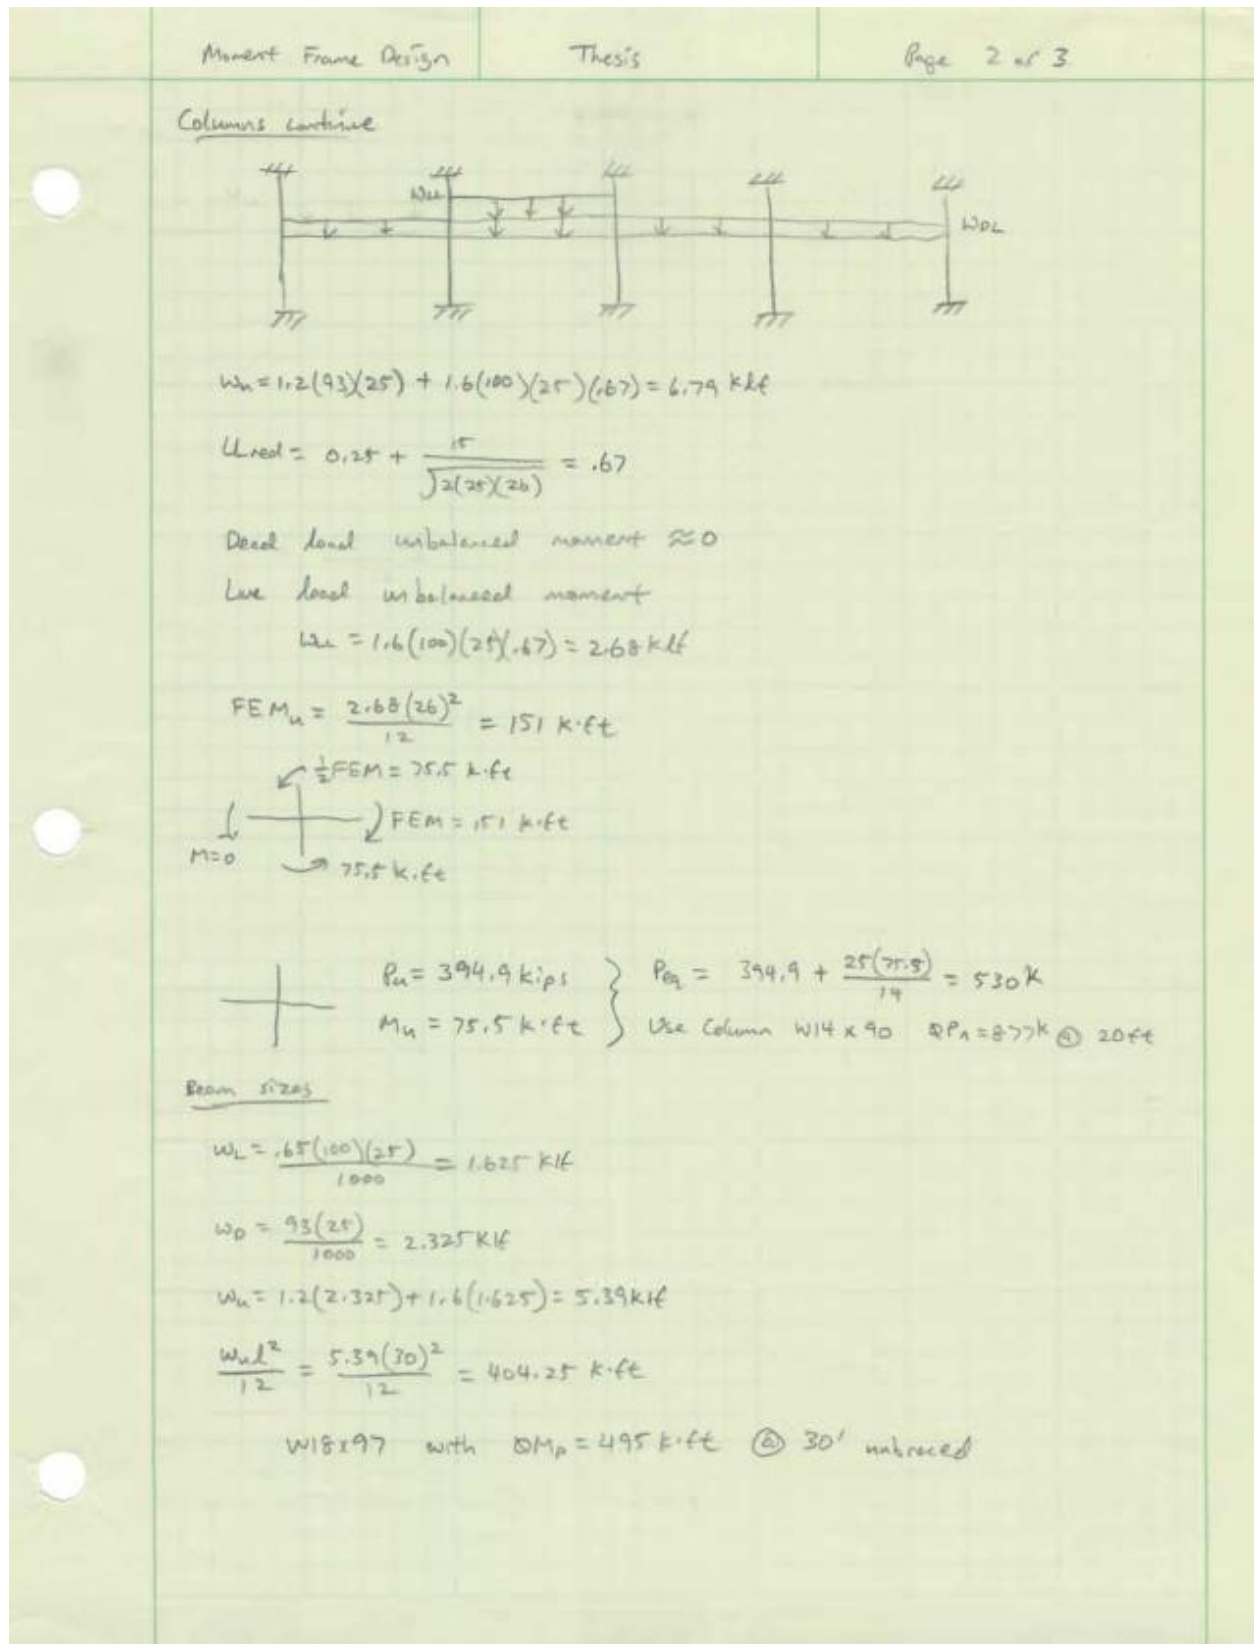 Moment Frame Design Thesis Page 2 of 3
Columns continue
WLL
WDL
Wu = 1.2(93)(25) + 1.6(100)(25)(.67) = 6.79 klf
LLred = 0.25 + 15/√2(25)(26) = .67
Dead load unbalanced moment ≈ 0
Live load unbalanced moment
WLL = 1.6(100)(25)(.67) = 2.68 klf
FEMu = 2.68(26)²/12 = 151 k·ft
½FEM = 75.5 k·ft
FEM = 151 k·ft
M=0
75.5 k·ft
Pu = 394.9 kips } Peq = 394.9 + 25(75.5)/14 = 530 k
Mu = 75.5 k·ft } Use Column W14 x 90 ØPn = 877k @ 20ft
Beam sizes
WL = .65(100)(25)/1000 = 1.625 klf
WD = 93(25)/1000 = 2.325 klf
Wu = 1.2(2.325) + 1.6(1.625) = 5.39 klf
Wul²/12 = 5.39(30)²/12 = 404.25 k·ft
W18x97 with ØMp = 495 k·ft @ 30' unbraced